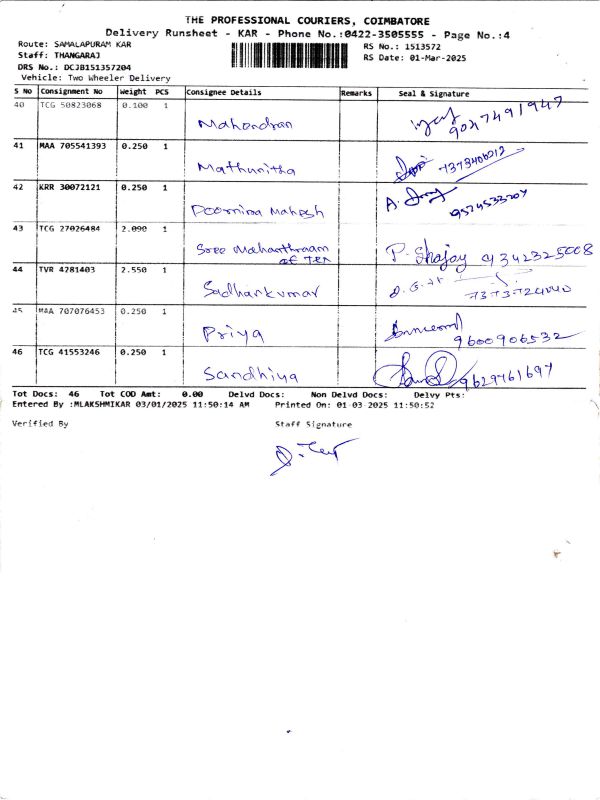 THE PROFESSIONAL COURIERS, COIMBATORE
Delivery Runsheet - KAR - Phone No.:0422-3505555 - Page No.:4
Route: SAMALAPURAM KAR
RS No.: 1513572
Staff: THANGARAJ
RS Date: 01-Mar-2025
DRS No.: DCJB151357204
Vehicle: Two Wheeler Delivery
S No Consignment No Weight PCS Consignee Details Remarks Seal & Signature
40 TCG 50823068 0.100 1 Mahendran 9047491947
41 MAA 705541393 0.250 1 Mathunitha 7373406012
42 KRR 30072121 0.250 1 Poornima Mahesh
43 TCG 27026484 2.090 1 Sree Mahanthraam P. Shajay 9342325008
of TEX
44 TVR 4281403 2.550 1 Sadhankumar
45 MAA 707076453 0.250 1 Priya 9600906532
46 TCG 41553246 0.250 1 Sandhiya 9629761697
Tot Docs: 46 Tot COD Amt: 0.00 Delvd Docs: Non Delvd Docs: Delvy Pts:
Entered By :MLAKSHMIKAR 03/01/2025 11:50:14 AM Printed On: 01-03-2025 11:50:52
Verified By Staff Signature